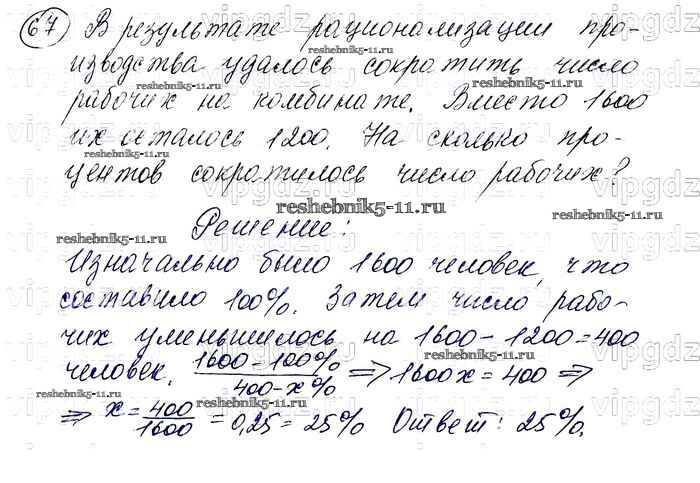 67 В результате рационализации про-
изводства удалось сократить число
рабочих на комбинате. Вместо 1600
их осталось 1200. На сколько про-
центов сократилось число рабочих?
Решение:
Изначально было 1600 человек, что
составило 100%. Затем число рабо-
чих уменьшилось на 1600-1200=400
человек. 1600-100% / 400-x% => 1600x=400 =>
=> x=400/1600=0,25=25% Ответ: 25%.
reshebnik5-11.ru
reshebnik5-11.ru
reshebnik5-11.ru
reshebnik5-11.ru
reshebnik5-11.ru
reshebnik5-11.ru
reshebnik5-11.ru
reshebnik5-11.ru
reshebnik5-11.ru
vipgdz